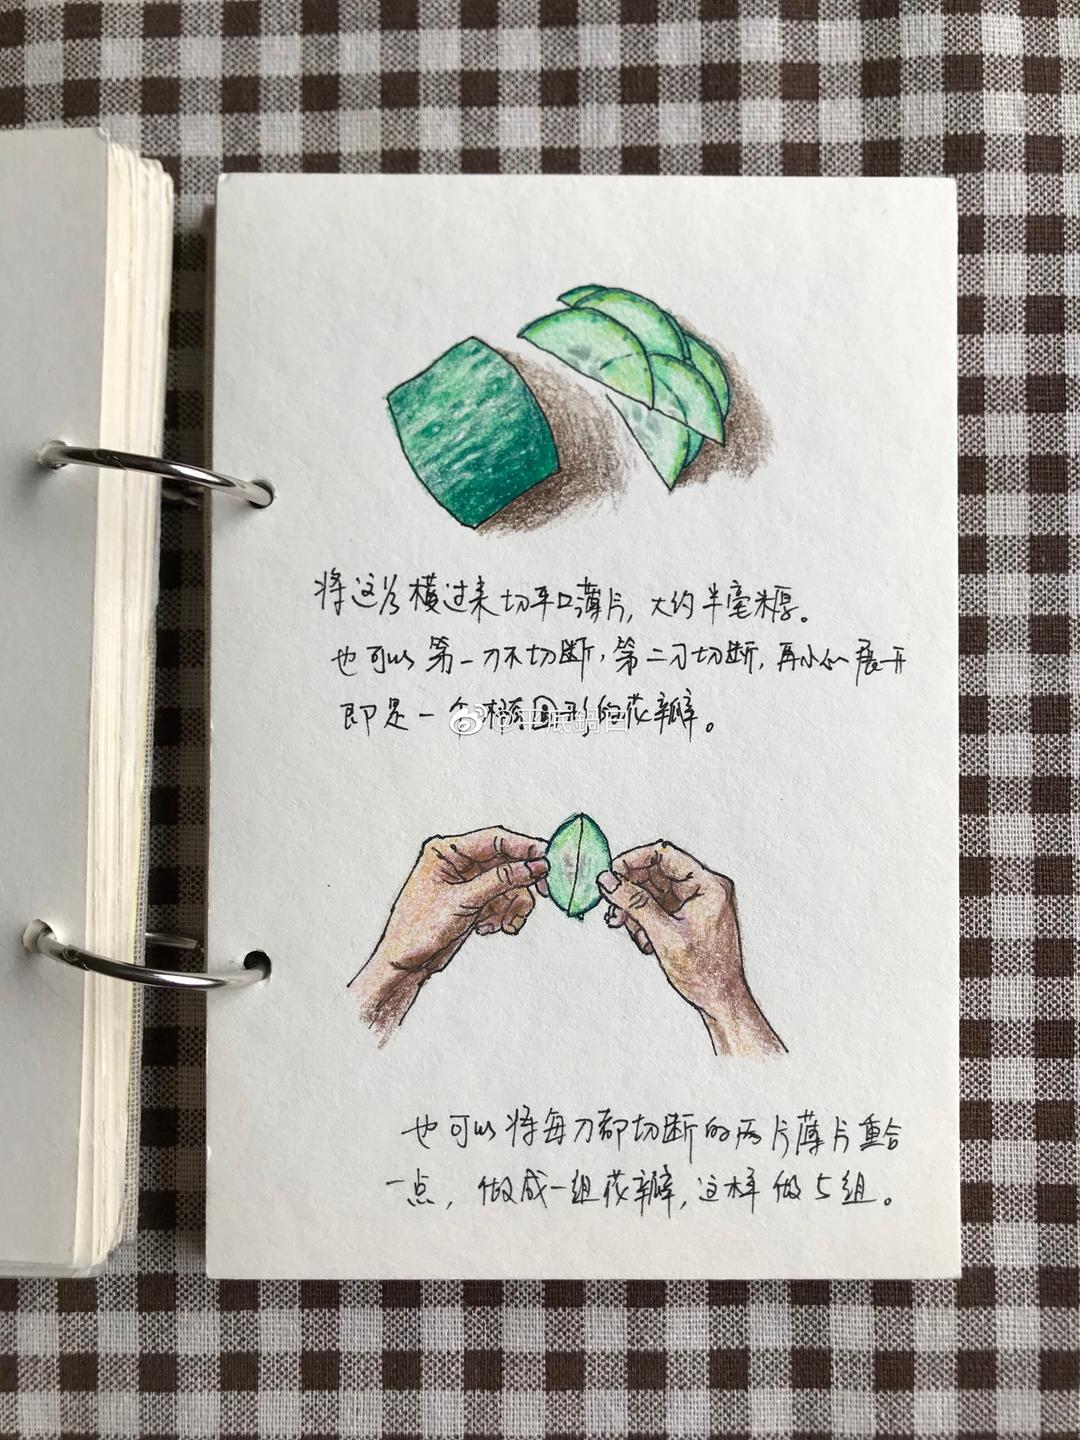 将这么横过来切平口薄片，大约半毫米厚。
也可以第一刀不切断，第二刀切断，再小心展开
即是一个椭圆形的花瓣。
也可以将每刀都切断的两片薄片重合
一点，做成一组花瓣，这样做5组。